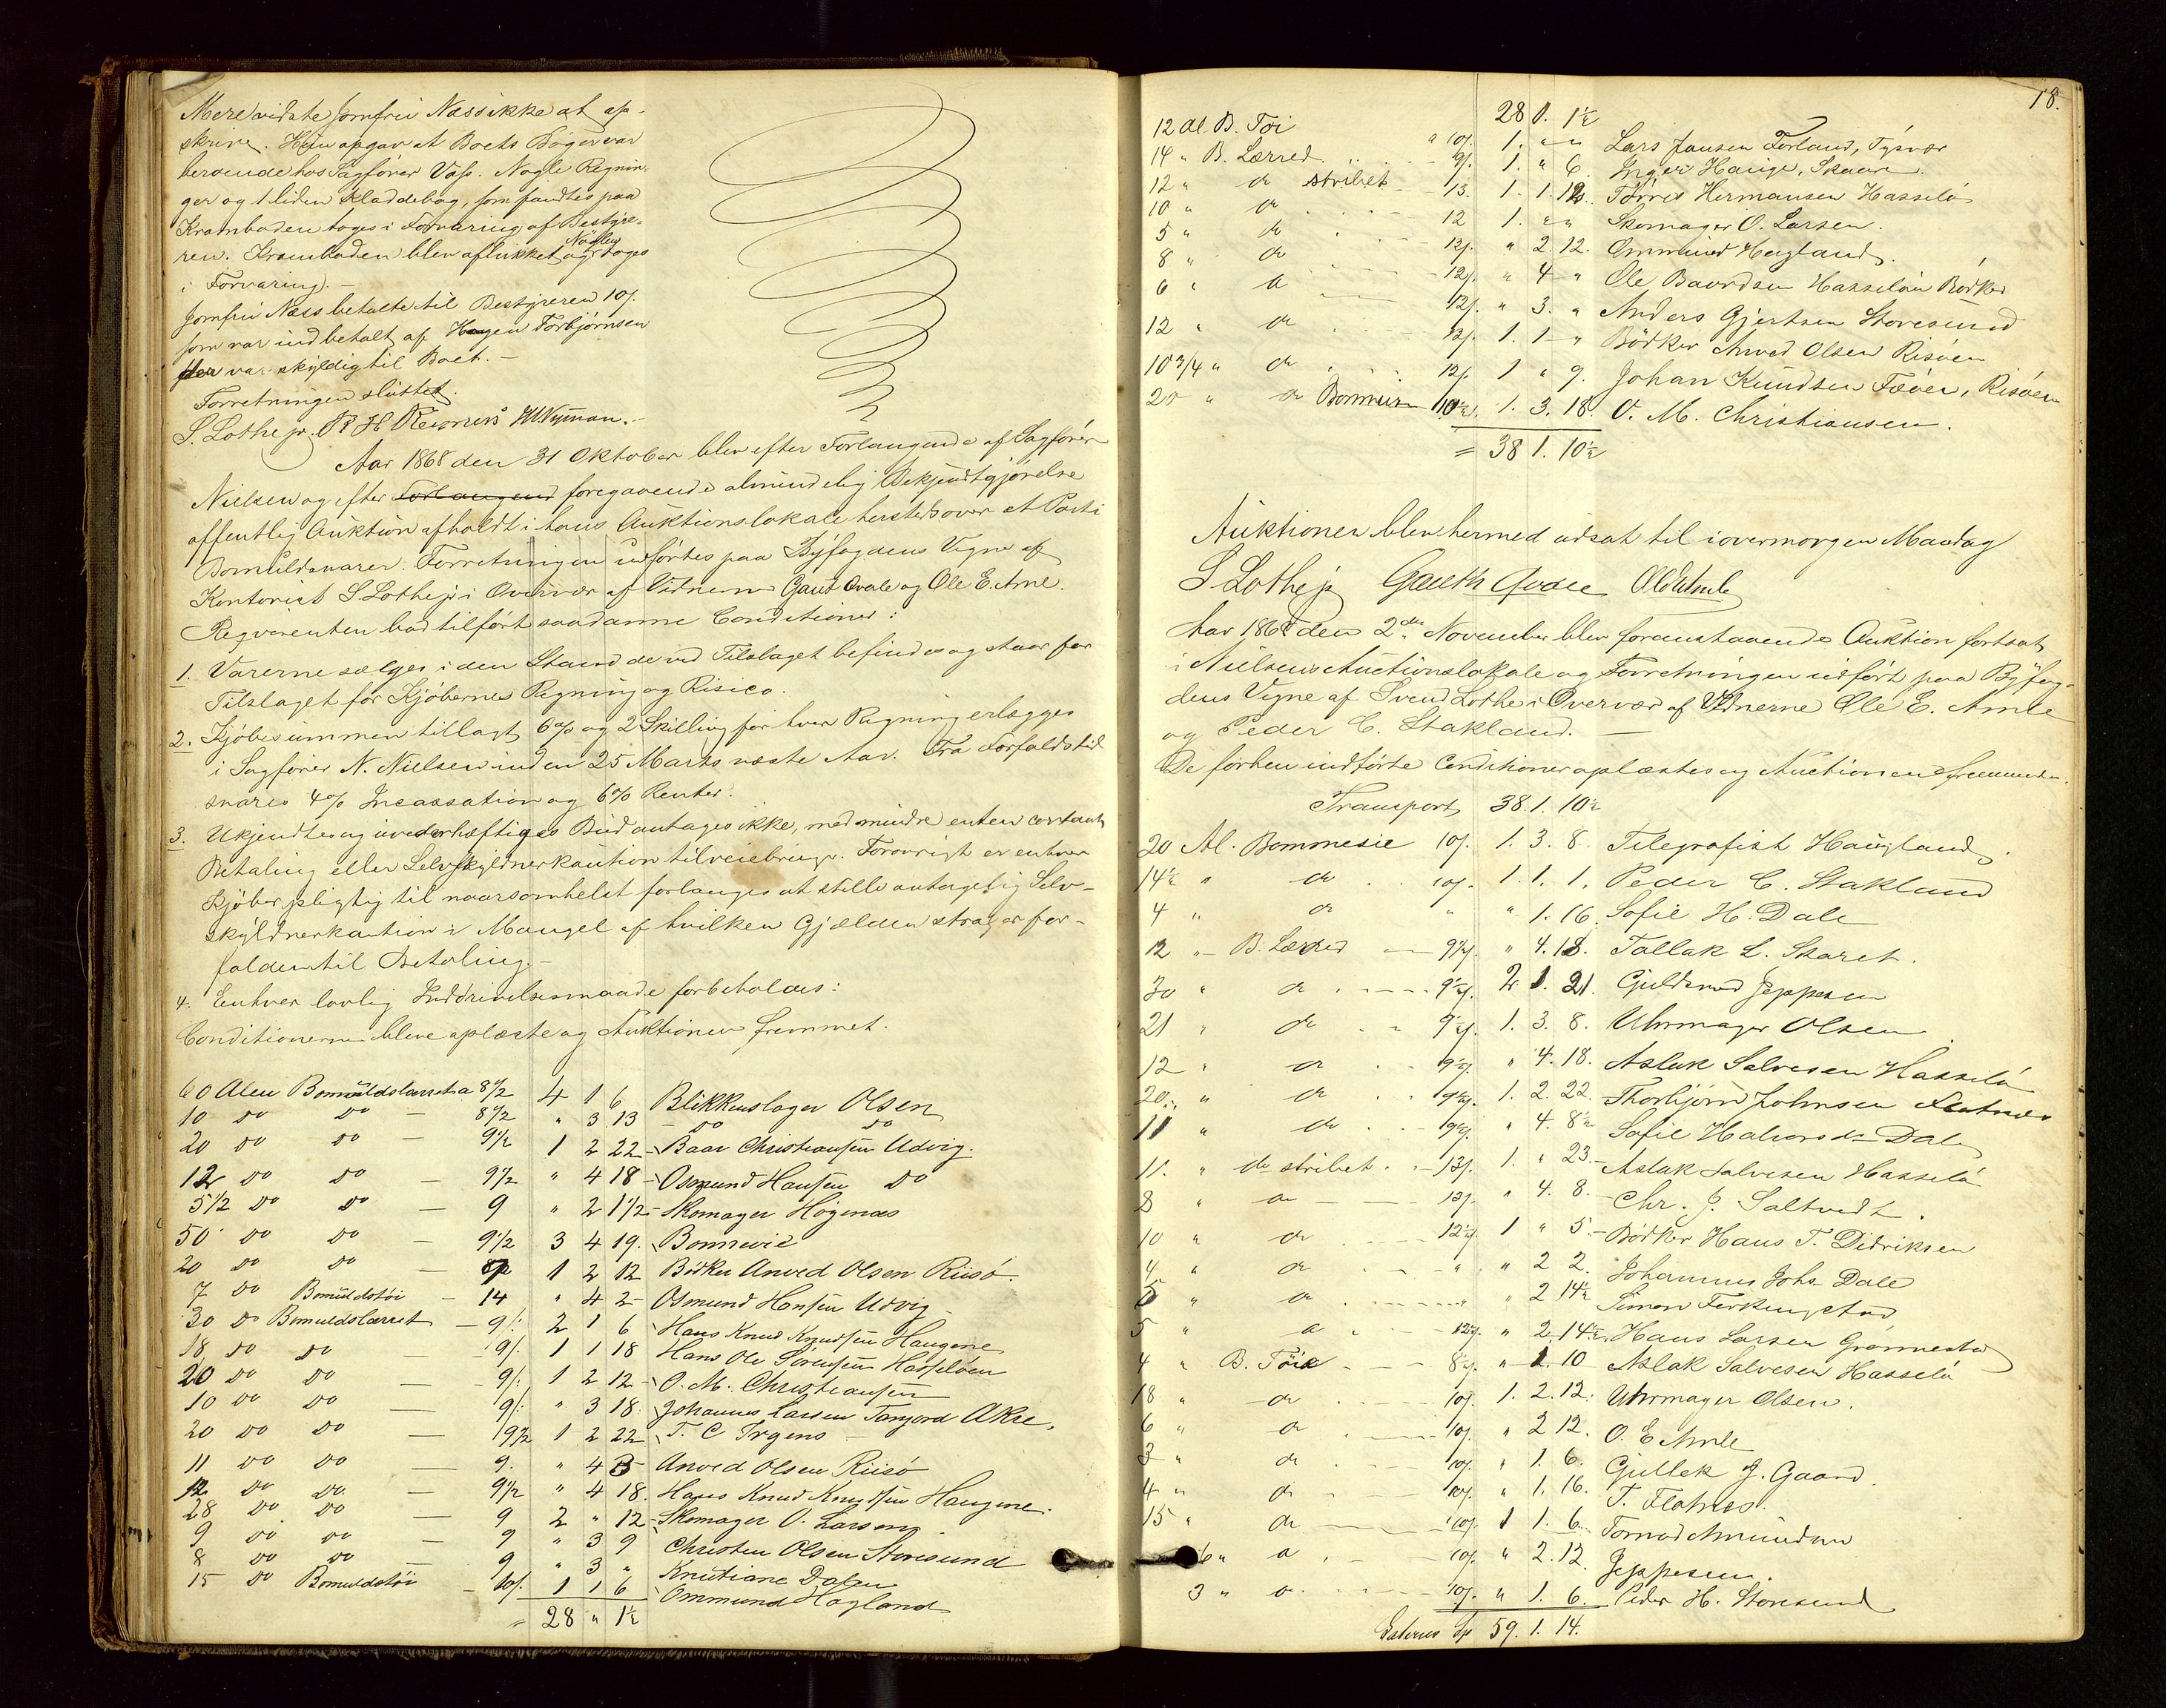 Mere vidste Jomfru Næss ikke at op-
skrive. Hun opgav at Boets Bøger var
beroende hos Sagfører Vass. Nogle Regnin-
ger og 1 liden Kladdebog, som fandtes paa
Kramboden toges i Forvaring af Bestyre-
ren. Kramboden blev aflukket og Nøglen toges
i Forvaring. –
Jomfru Næss betalte til Bestyreren 10 s.
som var indbetalt af Haagen Torbjørnsen
der var skyldig til Boet. –
Forretningen sluttet.
S. Lothe jr. R H Nyman. –
Aar 1868 den 31 Oktober blev efter Forlangende af Sagfører
Nielsen og efter Forlangend foregaaende almindelig Bekjendtgjørelse
offentlig Auktion afholdt i hans Auktionslokale hersteds over et Parti
Bomuldsvarer. Forretningen udførtes paa Byfogdens Vegne af
Kontorist S Lothe jr i Overvær af Vidnerne Gaut Qvale og Ole E. Amle.
Reqvirenten bad tilført saadanne Conditioner:
1. Varerne sælges i den Stand de ved Tilslaget befindes og staar fra
Tilslaget for Kjøbernes Regning og Risico.
2. Kjøbesummen tillagt 6% og 2 Skilling for hver Regning erlægges
i Sagfører N. Nielsen inden 25 Marts næste Aar. Fra Forfaldstid
svares 4% Incassation og 6% Renter.
3. Ukjendtes og uvederhæftiges Bud antages ikke, med mindre enten contant
Betaling eller Selvskyldnerkaution tilveiebringes. Forøvrigt er enhver
Kjøber pligtig til naarsomhelst forlanges at stille antagelig Selv-
skyldnerkaution i Mangel af hvilken Gjælden strax er for-
falden til Betaling. –
4. Enhver lovlig Inddrivelsesmaade forbeholdes:
Conditionerne bleve oplæste og Auktionen fremmet.
60 Alen Bomuldslærret a 8 1/2 4 1 6 Blikkenslager Olsen
10 do do – 8 1/2 " 3 13 – do do
20 do do – 9 1/2 1 2 22 – Baar Christiansen Udvig.
12 do do – 9 1/2 " 4 18 – Osmund Hansen do
5 1/2 do do – 9 " 2 1 1/2 – Skomager Høgenæs
50 do do – 9 1/2 3 4 19. Bonnevie
20 do do – 8 1/2 1 2 12 Bødker Anved Olsen Riisø.
7 do Bomuldstøi – 14 " 4 2 – Osmund Hansen Udvig –
30 do Bomuldslærret – 9 s. 2 1 6 Hans Knud Knudsen Haugene
18 do do – 9 s. 1 1 18 Hans Ole Sørensen Hasseløen
20 do do – 9 s. 1 2 12 – O. M. Christiansen
10 do do – 9 s. " 3 18. Johannes Larsen Tangjord Akre.
20 do do – 9 1/2 1 2 22 T. C Irgens –
11 do do – 9. " 4 3 Anved Olsen Riisø
12 do do. – 9 1/2 " 4 18. Hans Knud Knudsen Haugene.
28 do do – 9 2 " 12 – Skomager O. Larsen
9 do do – 9 " 3 9 Christen Olsen Storesund
8 do do – 9 " 3 " Knutiane Dalen
15 do Bomuldstøi – 10 s. 1 1 6 Ommund Hagland
= 28 " 1 1/2
18.
28 0. 1 1/2
12 Al. B. Tøi " 10 s. 1. " " Lars Jansen Førland, Tysvær
14 " B. Lærred . . . 9 s. 1. " 6. Inger Hauge, Skaare.
12 " do stribet – 13. 1. 1. 12. Tørres Hermansen Hasselø
10 " do . . . . 12 1. " " Skomager O. Larsen.
5 " do . . . 12 s. " 2. 12. Ommund Hagland.
8 " do . . . 12 s. " 4 " Ole Baardsen Hasseløen Bødker
6 " do . . . 12 s. " 3. " Anders Gjertsen Storesund
12 " do . . . 12 s. 1. 1 " Bödker Anved Olsen Risöen
10 3/4 " do . . . 12 s. 1 " 9. Johan Knudsen Fæøen, Risøen
20 " do Bommesie 10 1/2 s. 1. 3. 18. O. M. Christiansen.
= 38 1. 10 1/2
Auktionen blev hermed udsat til iovermorgen Mandag
S Lothe jr Gauth Qvale Ole E Amle
Aar 1868 den 2den November blev foranstaaende Auktion fortsat
i Nielsens Auctionslokale og Forretningen udført paa Byfog-
dens Vegne af Svend Lothe i Overvær af Vidnerne Ole E. Amle
og Peder C. Stakland. –
De forhen indførte Conditioner oplæstes og Auctionen fremmedes.
Transport 38. 1. 10 1/2
20 Al. Bommesie 10 s. 1. 3. 8. Telegrafist Haugland.
14 1/2 " do . . 10 s. 1. 1. 1. Peder C. Stakland
4 " do " " 1. 16. Sofie H. Dale
12 " B. Lærred – 9 1/2 s. " 4. 18. Tallak L. Skaret.
30 " do . – – – 9 1/2 s. 2 1. 21. Guldsmed Jeppesen
21 " do . " 9 1/2 s. 1. 3. 8. Uhrmager Olsen.
12 " do . – 9 1/2 s. " 4. 18. Aslak Salvesen Hasselø
20 " do . . 9 1/2 s. 1. 2. 22. Thorbjørn Johnsen
11 " do . . – 9 1/2 s. " 4. 8 1/2 Sofie Halvorsdr Dale
11. " do stribet . – 13 s. 1. " 23. – Aslak Salvesen Hasselø
8 " do – – 13 s. " 4. 8. – Chr. J. Saltvedt.
10 " do . . 12 1/2 s. 1 " 5 – Bødker Hans T. Didriksen
4 " do . – – " " 2 2. Johannes Johs Dale
5 " do . . . . " " 2 14 1/2 Simon Ferkingstad
5 " do . – – 12 1/2 s. " 2 14 1/2 Hans Larsen Grønnestad
4 " B. Tøie . – – 8 1/2 s. " 1. 10 – Aslak Salvesen Hasselø
18 " do . – – 10 s. 1. 2. 12. Uhrmager Olsen.
6 " do . – – 10 s. " 2 12. O. E Amle
3 " do . – – 10 s. " 1. 6. Gullek J. Gaard.
4 " do – – 10 s. " 1. 16. T. Flotnes.
15 " do – – 10 s. 1 1. 6. Tormod Amundsen
6 " do . – – 10 s. " 2. 12. Jeppesen.
3 " do . – – 10 s. " 1. 6. Peder H. Storesund
Lateris Sp 59. 1. 14.